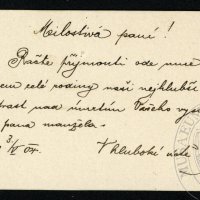 Milostivá paní!
Račte přijmouti ode mne
jem celé rodiny naší nejhlubší
trast nad úmrtím Vašeho
pana manžela.
3/IV 04. V hluboké úctě